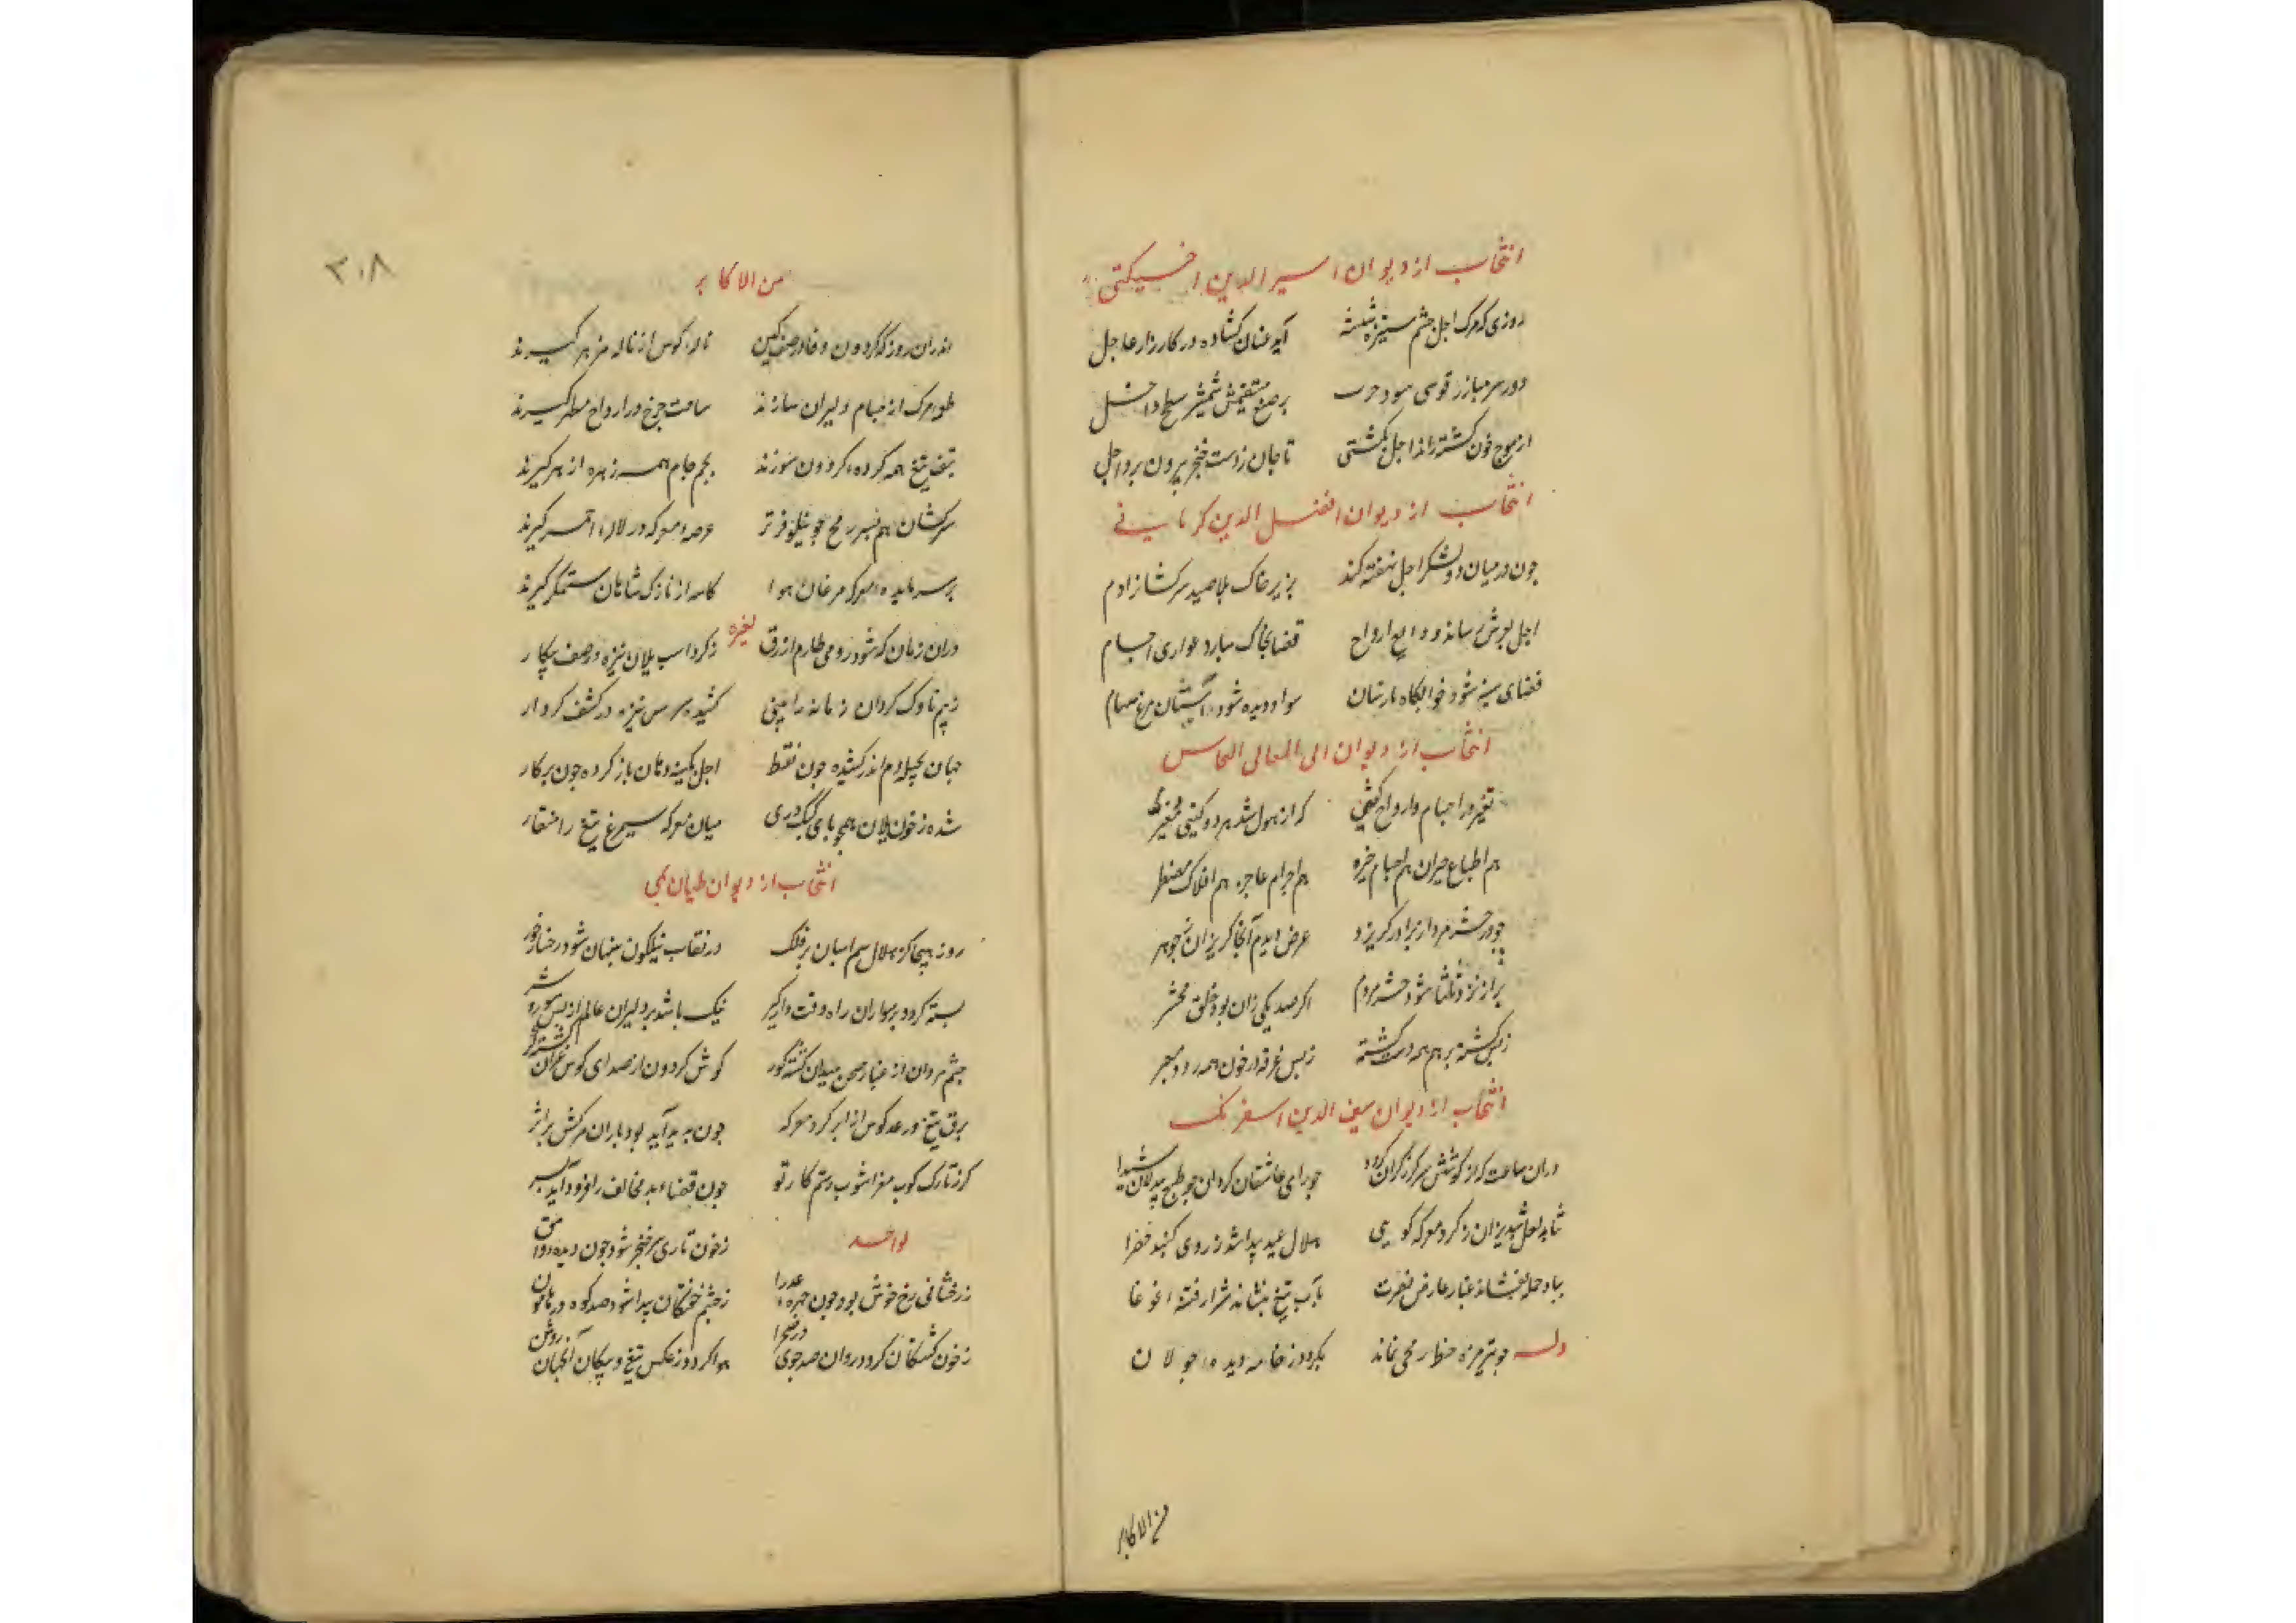 انتخاب از دیوان اسیر الدین اخسیکتی
روزی که مرک اجل چشم ستیزه شسته آید عنان کشاده در کارزار عاجل
دور سر مبارز قوسی سود بر صنع مستقیمش شمشیر سطح داخل
از موج خون کشته را ند اجل بکشتی تا جان ز دست خنجر بیرون برد اجل
انتخاب از دیوان افضل الدین کرمانی
چون در میان دو لشکر اجل نهفته کند بزیر خاک بلا صید سرکشانرا دم
اجل بوش رساند ودایع ارواح قضا بخاک سپارد عواری اجسام
فضای سینه شود خوابکاه مار سنان سواد دیده شود آشیان مرغ سهام
انتخاب از دیوان ابی المعالی النحاس
تغیر در اجسام و ارواح کفتی که از هول شد هر دو کیتی مغیر
هم اطباع حیران هم اجسام خیره هم اجرام عاجز هم افلاک مضطر
چو در حشر مرد از برادر کریزد عرض دیدم آنجا کریزان ز جوهر
اکر صد یکی زان بود خلق محشر
ز بس کشته بر هم همه دشت پشته ز بس غرقه در خون همه
انتخاب از دیوان سیف الدین اسفرنک
دران ساعت که از کوشش سر کرز کران کردد چو رای عاشقان کردان چو طبع بیدلان شیدا
نماید لعل شبدیزان ز کرد معرکه کویی هلال عید پیدا شد ز روی کنبد خضرا
بباد حمله بفشاند غبار عارض نصرت بآب تیغ بنشاند شرار فتنه و غوغا
وله چو تیر مژه خطا رمحی نماند بکردد ز خانه دیده جولان
من الاکابر
۳۰۸
من الاکابر
اندران روز که کردون وغا در صف کین ناله کوس از ناله مزهر کیرند
طور مرک از اجسام دلیران سازند ساحت چرخ در ارواح مطهر کیرند
بتف تیغ همه کرده کردون سوزند بجم جام همه زهره ازهر کیرند
سرکشان هم بسر رمح چو نیلوفر تر عرصه معرکه در لاله احمر کیرند
بر سر مایده معرکه مرغان هوا کاسه از تارک شاهان ستمکر کیرند
لغیره
دران زمان که شود روی طارم ازرق ز کرد اسب یلان تیره در صف پیکار
ز بیم ناوک کردان زمانه را بینی کشیده سر سر نیزه در کشف کردار
جهان بحیله دم اندر کشیده چون نقطه اجل بکینه دهان باز کرده چون پرکار
شده ز خون یلان همچو پای کبک دری میان معرکه سیمرغ تیغ را منقار
انتخاب از دیوان طیان بمی
روز هیجا کز هلال سم اسبان بر فلک در نقاب نیلکون پنهان شود رخسار خور
بسته کردد بر سواران راه وقت دار و کیر نیک باشد بر دلیران عالم از بس شور و شر
چشم مردان از غبار صحن میدان کشته کور کوش کردون از صدای کوس غران کشته کر
برق تیغ و رعد کوس از ابر کرد معرکه چون پدید آید بود باران مرکش بر اثر
کرز تارک کوب مغز آشوب رستم کار تو چون قضاء بد مخالف را فرود آید بسر
لواحد
ز خون تاری سر خنجر شود چون دیده وامق ز رخشانی رخ خوش بود چون چهره عذرا
ز خشم خستکان پیدا شود صد کوه در هامون ز خون کشتکان کردد روان صد جوی در صحرا
هوا کردد ز عکس تیغ و پیکان آنچنان روشن